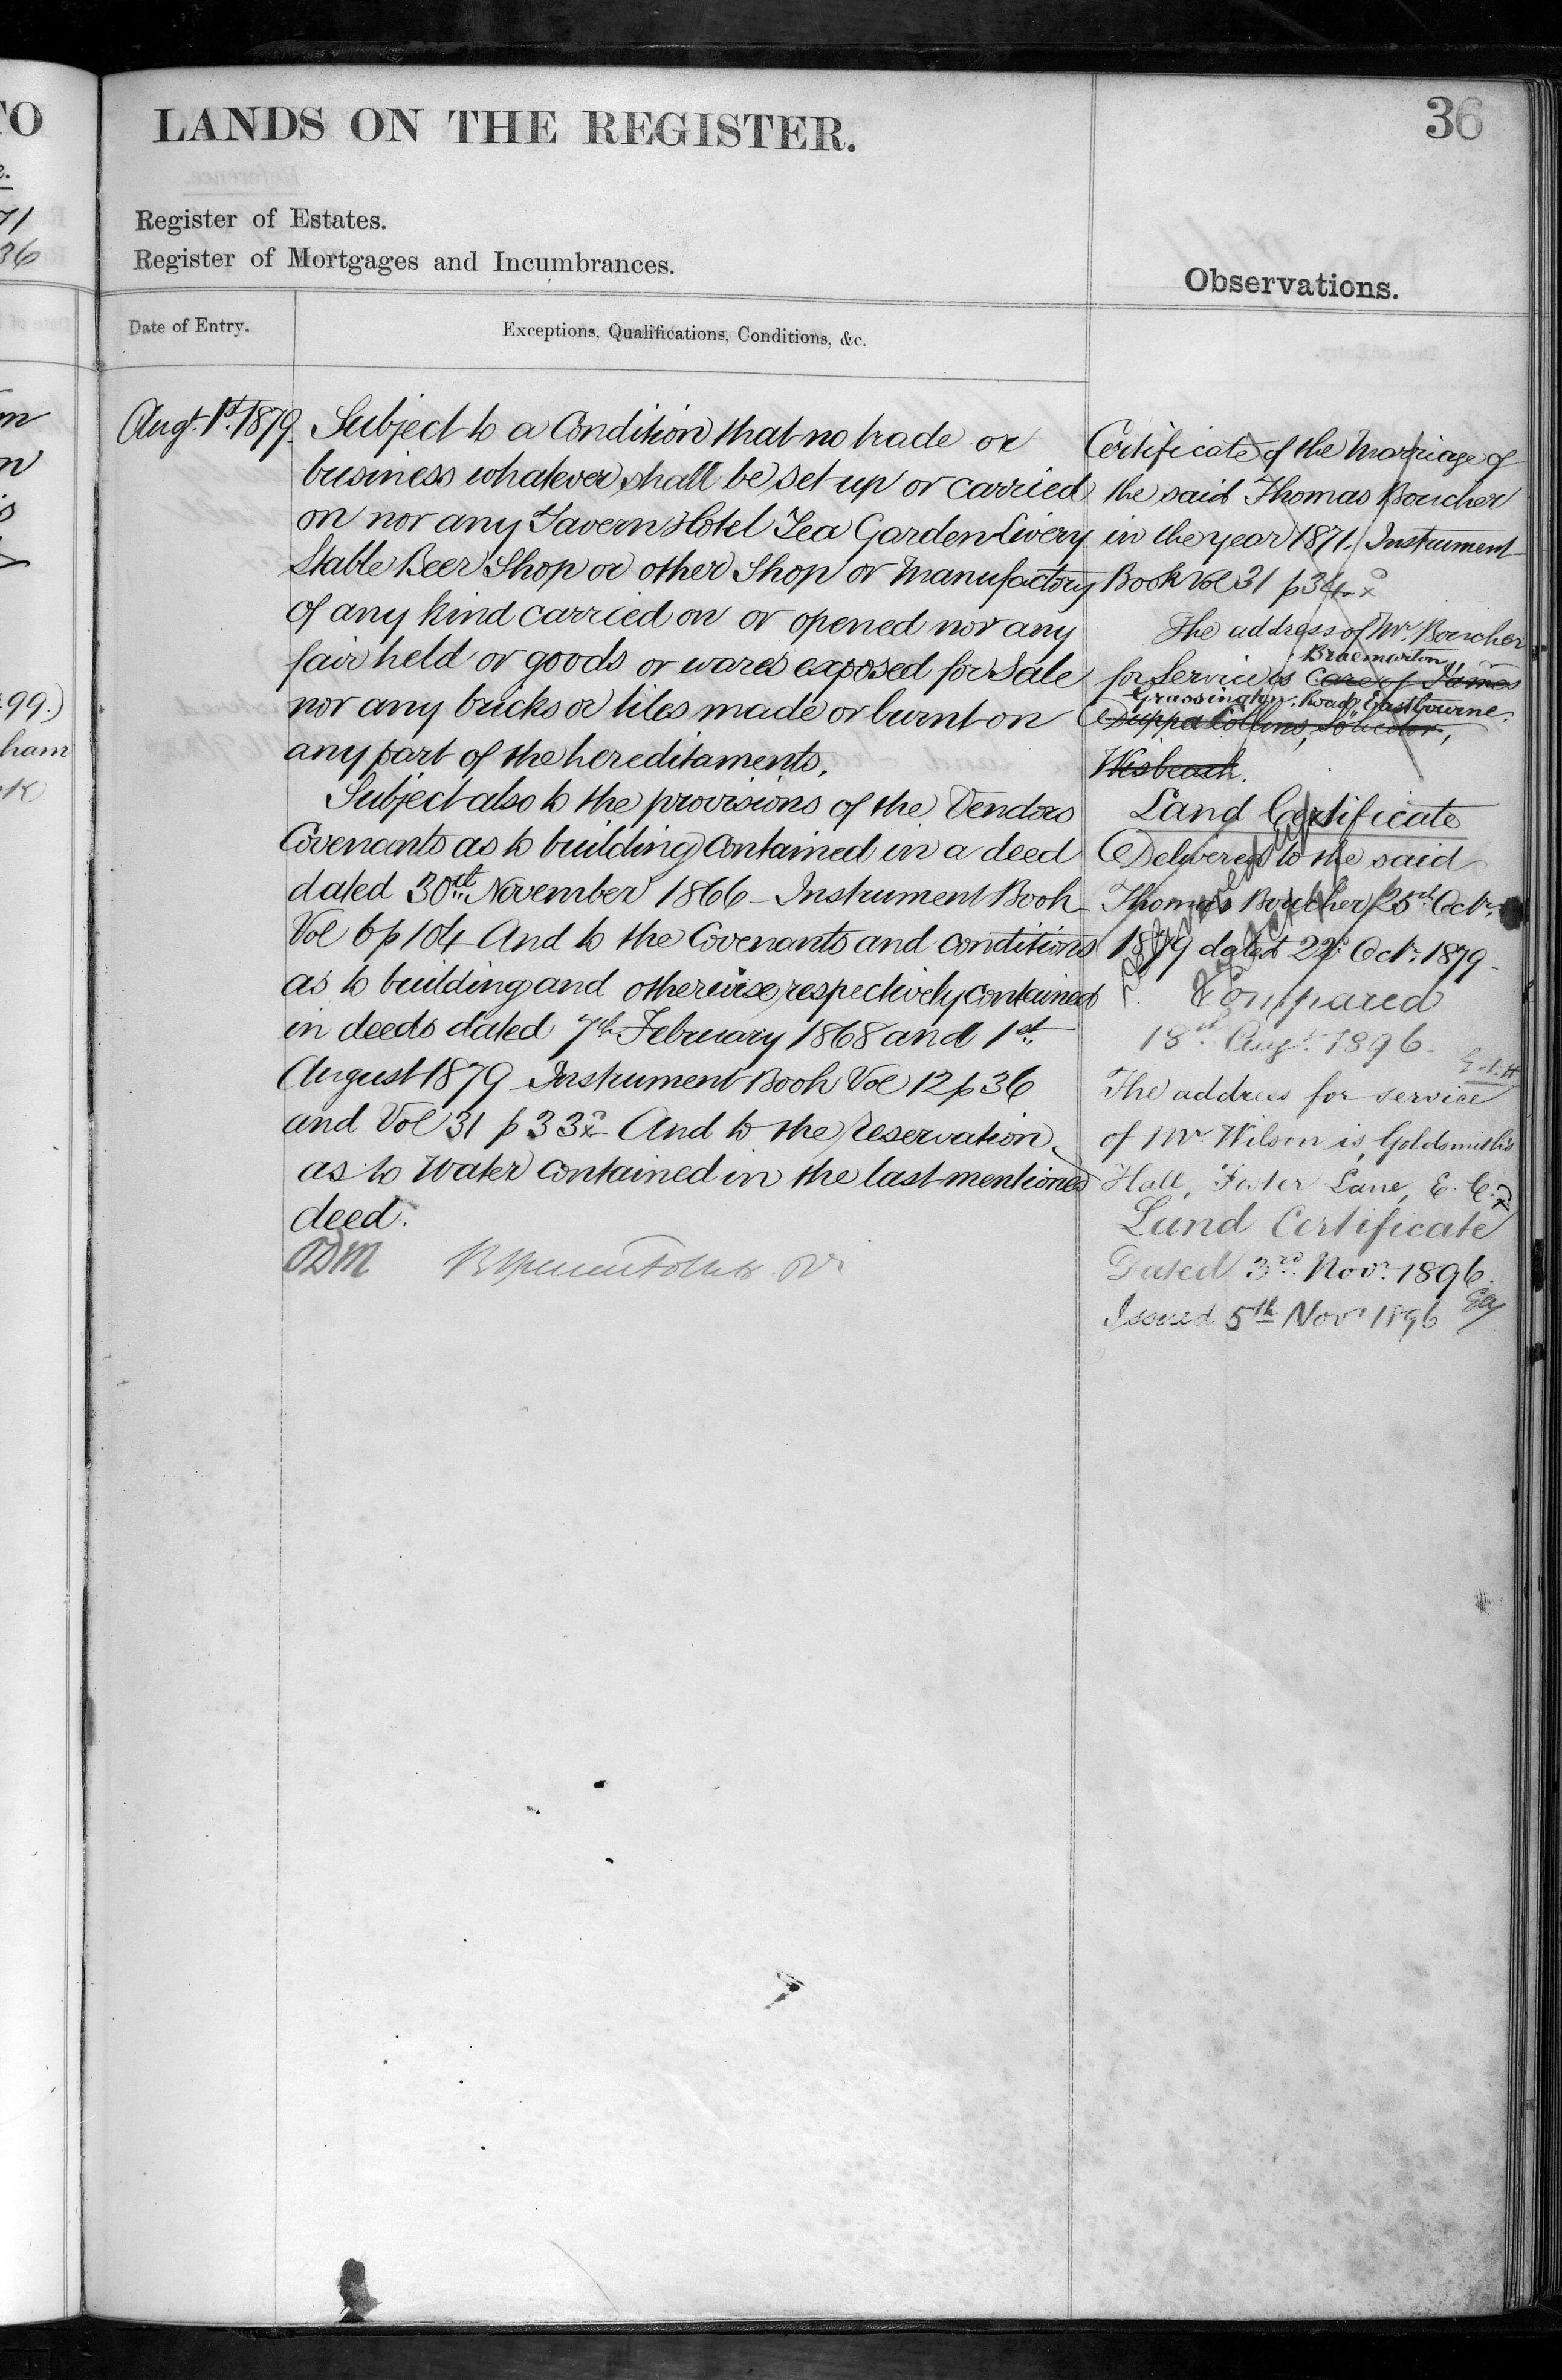 TO
LANDS ON THE REGISTER.
36
Register of Estates.
Register of Mortgages and Incumbrances.
Observations.
Date of Entry.
Exceptions, Qualifications, Conditions, &c.
71
36
99.)
ham
Augt. 1st. 1879.
Subject to a Condition that no trade or
business whatever shall be set up or carried
on nor any Tavern Hotel Tea Garden Livery
Stable Beer Shop or other Shop or Manufactory
of any kind carried on or opened nor any
fair held or goods or wares exposed for Sale
nor any bricks or tiles made or burnt on
any part of the hereditaments.
Subject also to the provisions of the Vendors
Covenants as to building contained in a deed
dated 30th. November 1866 - Instrument Book
Vol 6 p 104 And to the Covenants and conditions
as to building and otherwise respectively contained
in deeds dated 7th February 1868 and 1st.
August 1879 Instrument Book Vol 12 p 36
and Vol 31 p 33 And to the reservation
as to Water contained in the last mentioned
deed.
Certificate of the Marriage of
the said Thomas Boucher
in the year 1871. Instrument
Book Vol 31 p 34
The address of Mr. Boucher
Braemarton
for Service is Care of James
Grassington Road, Eastbourne.
Duppa Collins, Solicitor,
Wisbeach.
Land Certificate
Delivered to the said
Thomas Boucher 25th Octr.
1879 dated 22d. Octr. 1879.
Compared
18th Augt. 1896.
The address for service
of Mr. Wilson is, Goldsmith's
Hall, Foster Lane, E.C.
Land Certificate
Dated 3rd. Novr. 1896.
Issued 5th Novr 1896